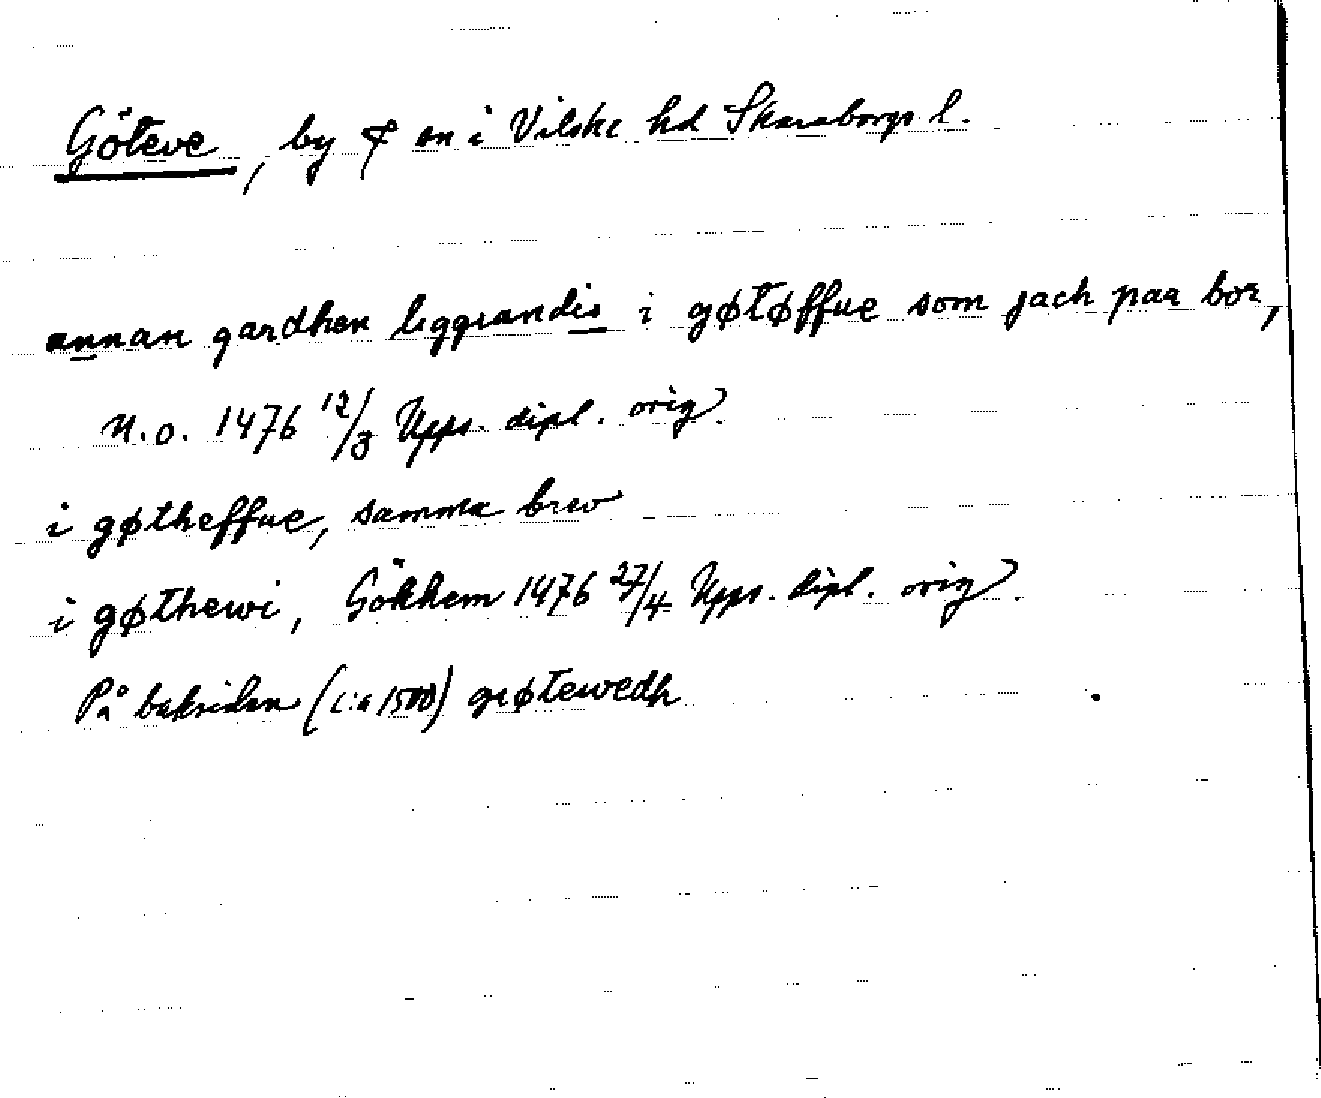 Göteve, by & sn i Vilske hd Skaraborgs l.
annan gardhen liggiandis i gøtøffue som jach paa bor,
U.o. 1476 12/3 Upps. dipl. orig.
i gøtheffue, samma brev
i gøthewi, Gökhem 1476 27/4 Upps. dipl. orig.
På baksidan (c:a 1500) gøtewedh